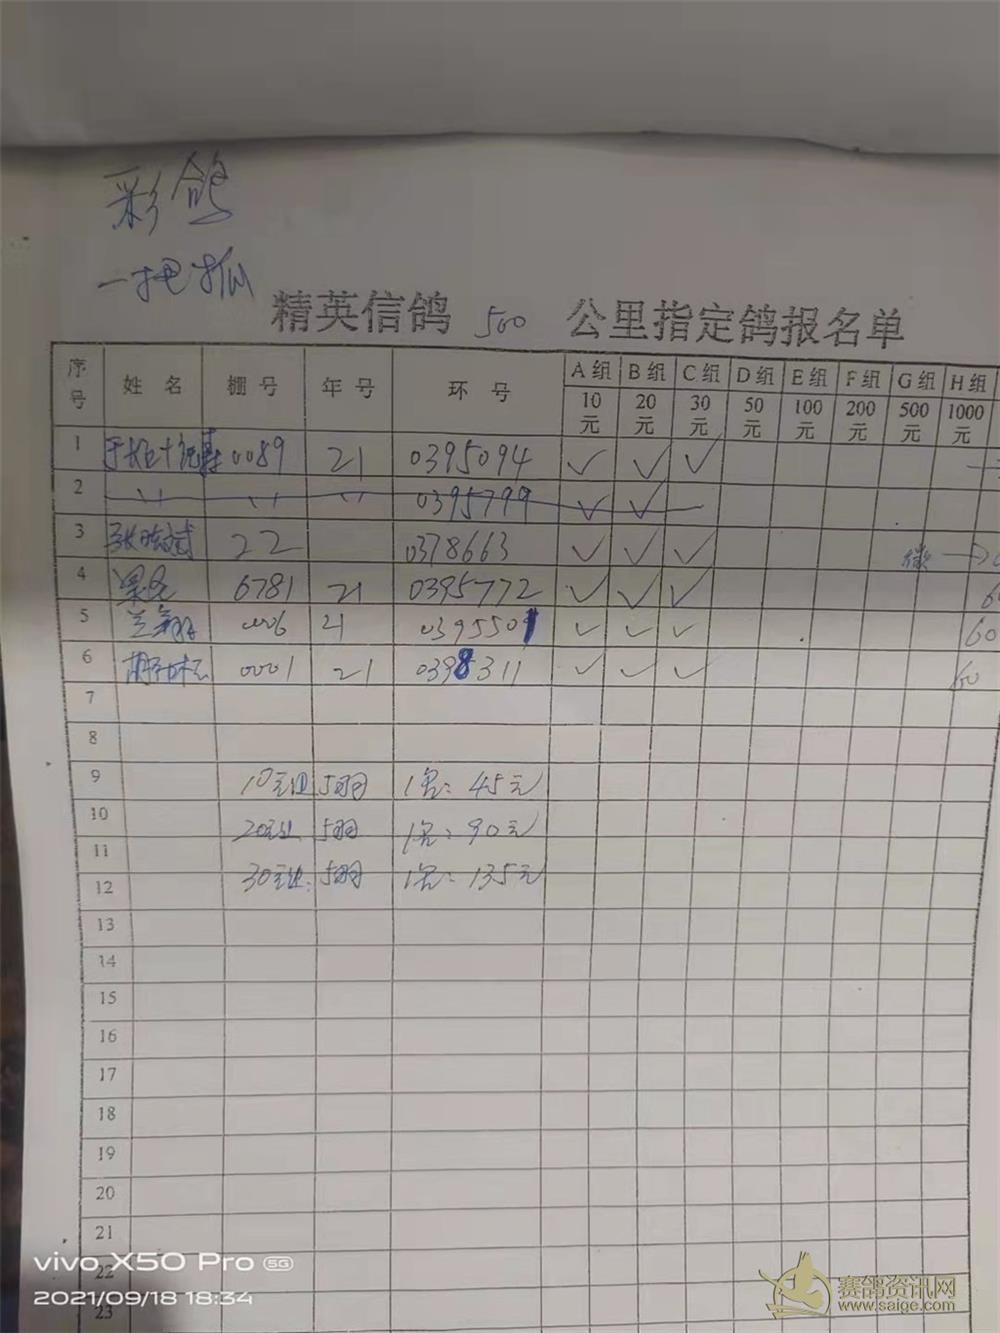 彩鸽
一把抓
精英信鸽 500 公里指定鸽报名单
序号 姓名 棚号 年号 环号 A组 10元 B组 20元 C组 30元 D组 50元 E组 100元 F组 200元 G组 500元 H组 1000元
1 0089 21 0395094 ✓ ✓ ✓
2 〃 〃 〃 0395799 ✓ ✓
3 22 0378663 ✓ ✓ ✓ 微
4 6781 21 0395772 ✓ ✓ ✓ 60
5 兰翔 006 21 0395501 ✓ ✓ ✓ 60
6 0001 21 0398311 ✓ ✓ ✓ 60
7
8
9 10元组 5羽 1名: 45元
10 20元组 5羽 1名: 90元
11
12 30元组: 5羽 1名: 135元
13
14
15
16
17
18
19
20
21
22
23
vivo X50 Pro 5G
2021/09/18 18:34
赛鸽资讯网
www.saige.com